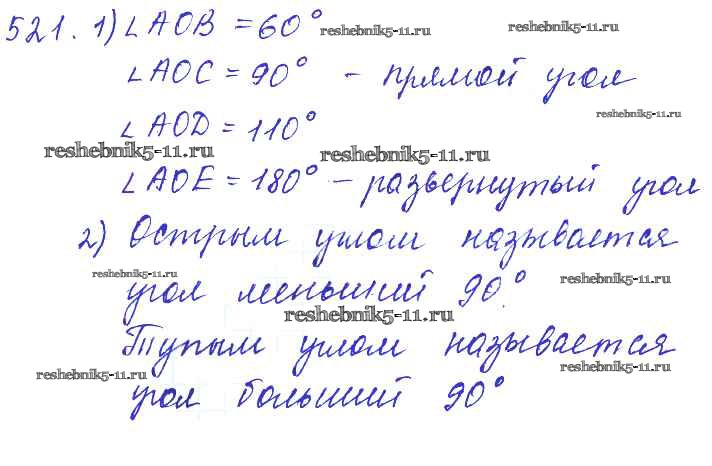 521. 1) ∠AOB = 60° reshebnik5-11.ru reshebnik5-11.ru
∠AOC = 90° – прямой угол
reshebnik5-11.ru
∠AOD = 110°
reshebnik5-11.ru reshebnik5-11.ru
∠AOE = 180° – развернутый угол
2) Острым углом называется
reshebnik5-11.ru reshebnik5-11.ru
угол меньший 90°.
reshebnik5-11.ru
Тупым углом называется
reshebnik5-11.ru reshebnik5-11.ru
угол больший 90°